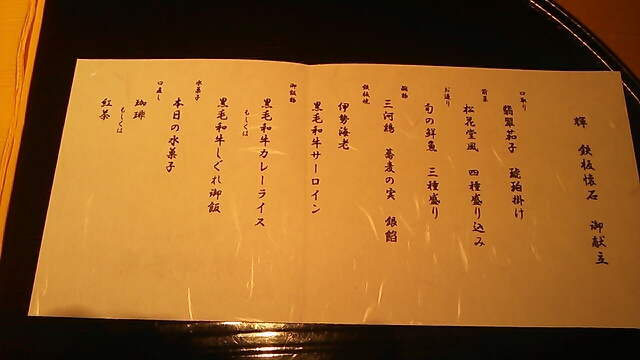 輝 鉄板懐石 御献立
口取り
翡翠茄子 琥珀掛け
前菜
松花堂風 四種盛り込み
お造り
旬の鮮魚 三種盛り
椀物
三河鶏 蕎麦の実 銀餡
鉄板焼
伊勢海老
黒毛和牛サーロイン
御飯物
黒毛和牛カレーライス
もしくは
黒毛和牛しぐれ御飯
水菓子
本日の水菓子
口直し
珈琲
もしくは
紅茶